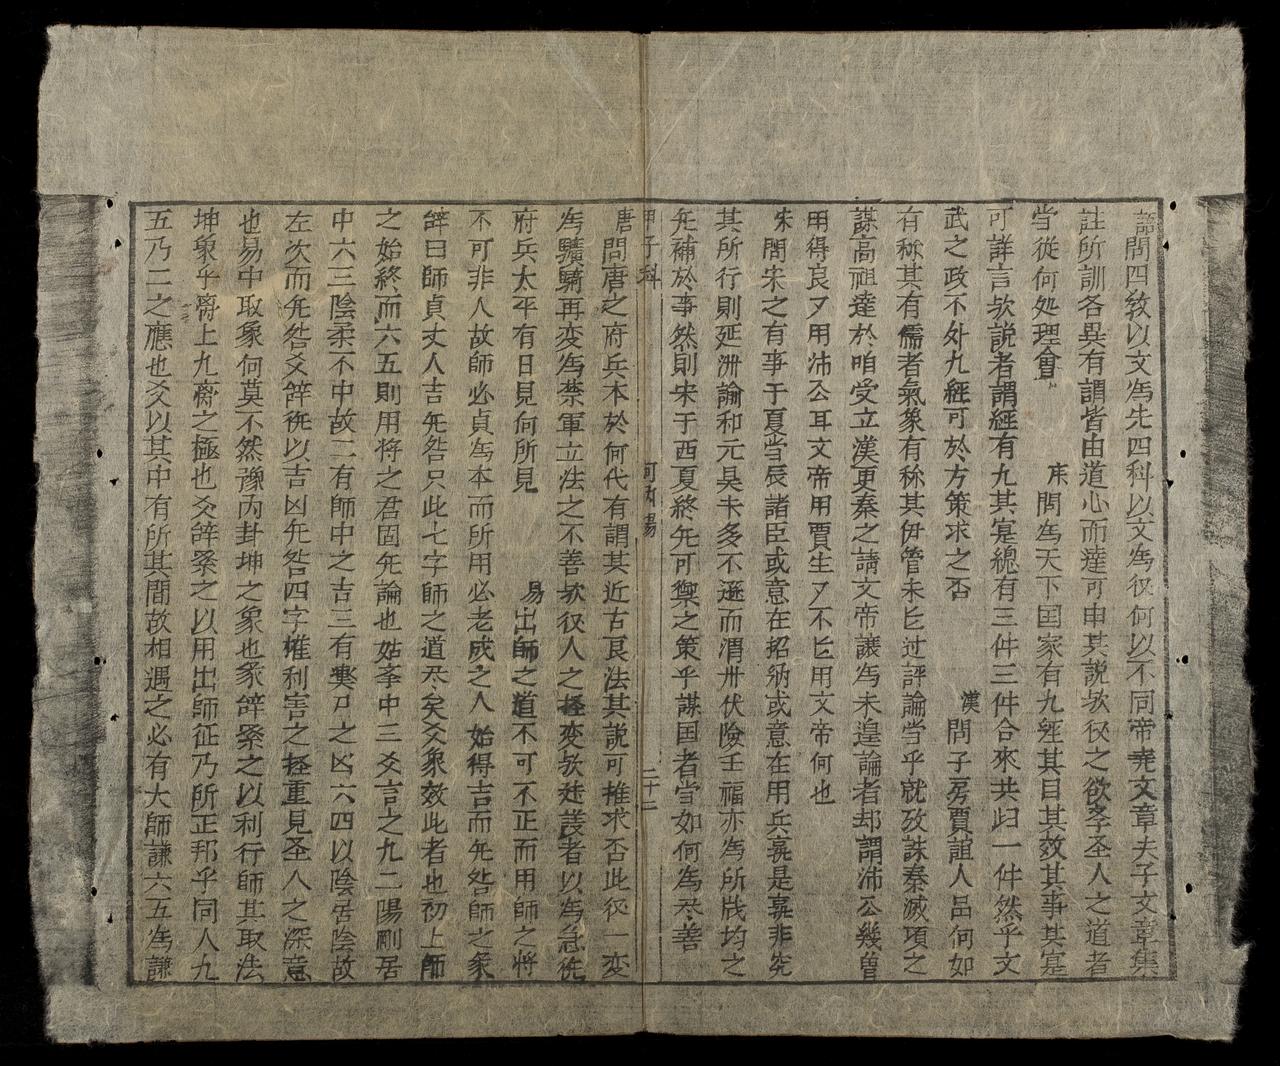 語問四教以文為先四科以文為後何以不同帝堯文章夫子文章集
註所訓各異有謂皆由道心而達可申其説欤後之欲孝圣人之道者
当從何処理會 庠問為天下国家有九経其目其效其事其寔
可詳言欤説者謂経有九其寔總有三件三件合來共归一件然乎文
武之政不外九経可於方策求之否 漢問子房賈誼人品何如
有称其有儒者氣象有称其伊管未匕过評論当乎就攷誅秦滅項之
謀高祖達於咱受立漢更秦之請文帝譲為未遑論者却謂沛公幾曽
用得良又用沛公耳文帝用賈生又不匕用文帝何也
宋問宋之有事于夏当辰諸臣或意在招納或意在用兵孰是孰非究
其所行則延洲論和元昊卡多不遜而渭州伏險壬福亦為所戕均之
旡補於事然則宋于西夏終旡可禦之策乎謀国者当如何為尽善
甲子科 二十二
唐問唐之府兵本於何代有謂其近古良法其説可推求否此後一変
為驥騎再変為禁軍立法之不善欤後人之輕変欤廷議者以為急徙
府兵太平有日見何所見 易出師之道不可不正而用師之将
不可非人故師必貞為本而所用必老成之人始得吉而旡咎師之彖
辞曰師貞丈人吉旡咎只此七字師之道尽矣爻象效此者也初上師
之始終而六五則用将之君固旡論也姑挙中三爻言之九二陽剛居
中六三陰柔不中故二有師中之吉三有輿尸之凶六四以陰居陰故
左次而旡咎爻辞既以吉凶旡咎四字推利害之輕重見圣人之深意
也易中取象何莫不然豫內卦坤之象也彖辞繫之以利行師其取法
坤象乎离上九离之極也爻辞繫之以用出師征乃所正邦乎同人九
五乃二之應也爻以其中有所其間故相遇之必有大師謙六五為謙